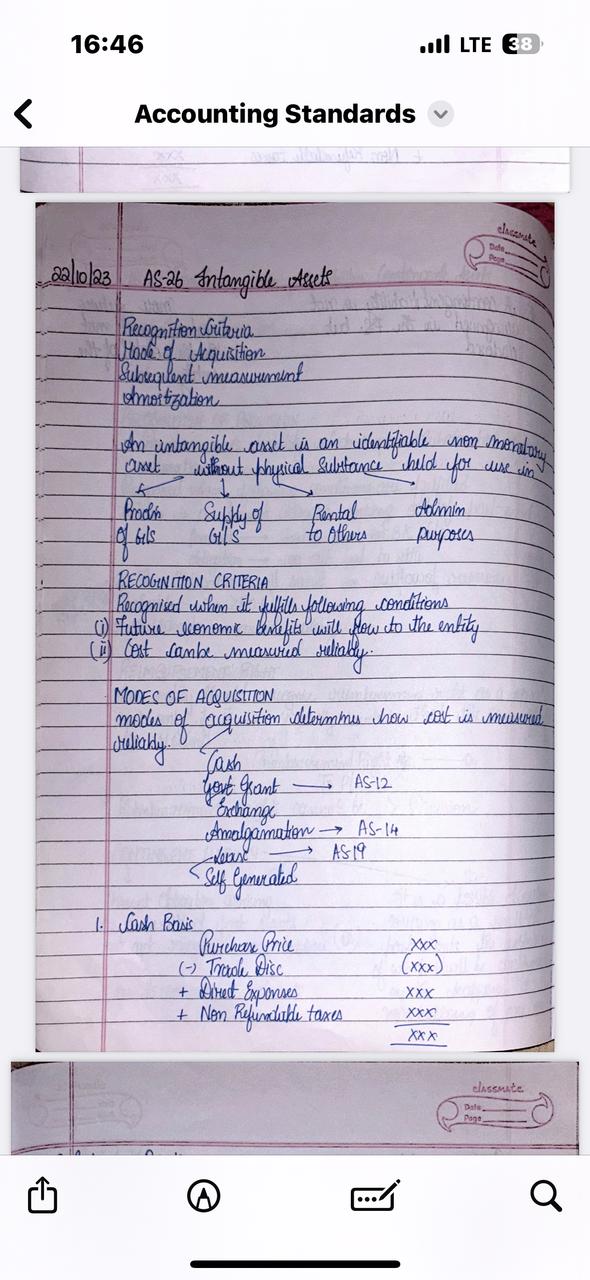 16:46
LTE 38
Accounting Standards
+ Non Refundable taxes xxx
xxx
classmate
Date
Page
22/10/23 AS-26 Intangible Assets
Recognition Criteria
Mode of Acquisition
Subsequent measurement
Amortization
An intangible asset is an identifiable non monetary
asset without physical substance held for use in
Prodn Supply of Rental Admin
of G/S G/S to Others purposes
RECOGNITION CRITERIA
Recognised when it fulfills following conditions
(i) Future economic benefits will flow to the entity
(ii) Cost can be measured reliably.
MODES OF ACQUISITION
modes of acquisition determines how cost is measured
reliably.
Cash
Govt Grant → AS-12
Exchange
Amalgamation → AS-14
Lease → AS19
Self Generated
1. Cash Basis
Purchase Price xxx
(-) Trade Disc (xxx)
+ Direct Expenses xxx
+ Non Refundable taxes xxx
xxx
classmate
Date
Page